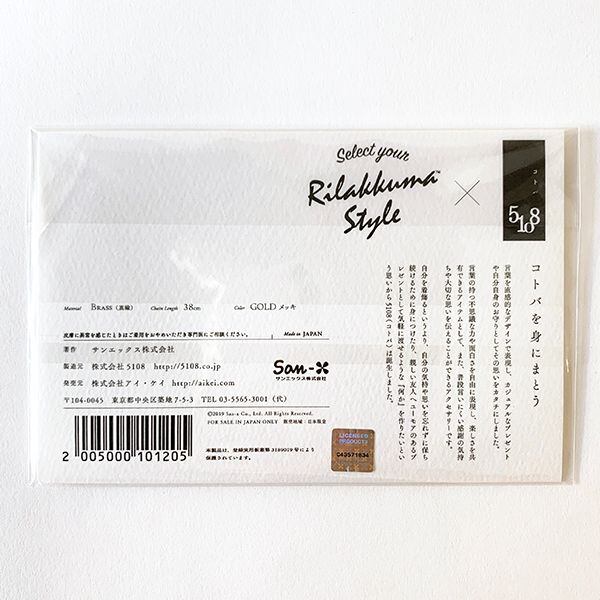 Select your
Rilakkuma™
Style
×
コトバ
5108
コトバを身にまとう
言葉を直感的なデザインで表現し、カジュアルなプレゼント
や自分自身のお守りとしてその思いをカタチにしました。
言葉の持つ不思議な力や面白さを自由に表現し、楽しさを共
有できるアイテムとして、また、普段言いにくい感謝の気持
ちや大切な思いを伝えることができるアクセサリーです。
自分を着飾るというより、自分の気持や思いを忘れずに保ち
続けるために身につけたり、親しい友人へユーモアのあるプ
レゼントとして気軽に渡せるような「何か」を作りたいとい
う思いから5108（コトバ）は誕生しました。
Material BRASS（真鍮） Chain Length 38cm Color GOLD メッキ
皮膚に異常を感じたときはご着用をおやめいただき専門医にご相談ください。 Made in JAPAN
著作 サンエックス株式会社
製造元 株式会社 5108 http://5108.co.jp
発売元 株式会社アイ・ケイ http://aikei.com
〒104-0045 東京都中央区築地 7-5-3 TEL 03-5565-3001（代）
San-X
サンエックス株式会社
©2019 San-x Co., Ltd. All Rights Reserved.
FOR SALE IN JAPAN ONLY 販売地域：日本限定
本製品は、登録実用新案第3189079号により
保護されています。
2 005000 101205
LICENSED
PRODUCT
C43571634